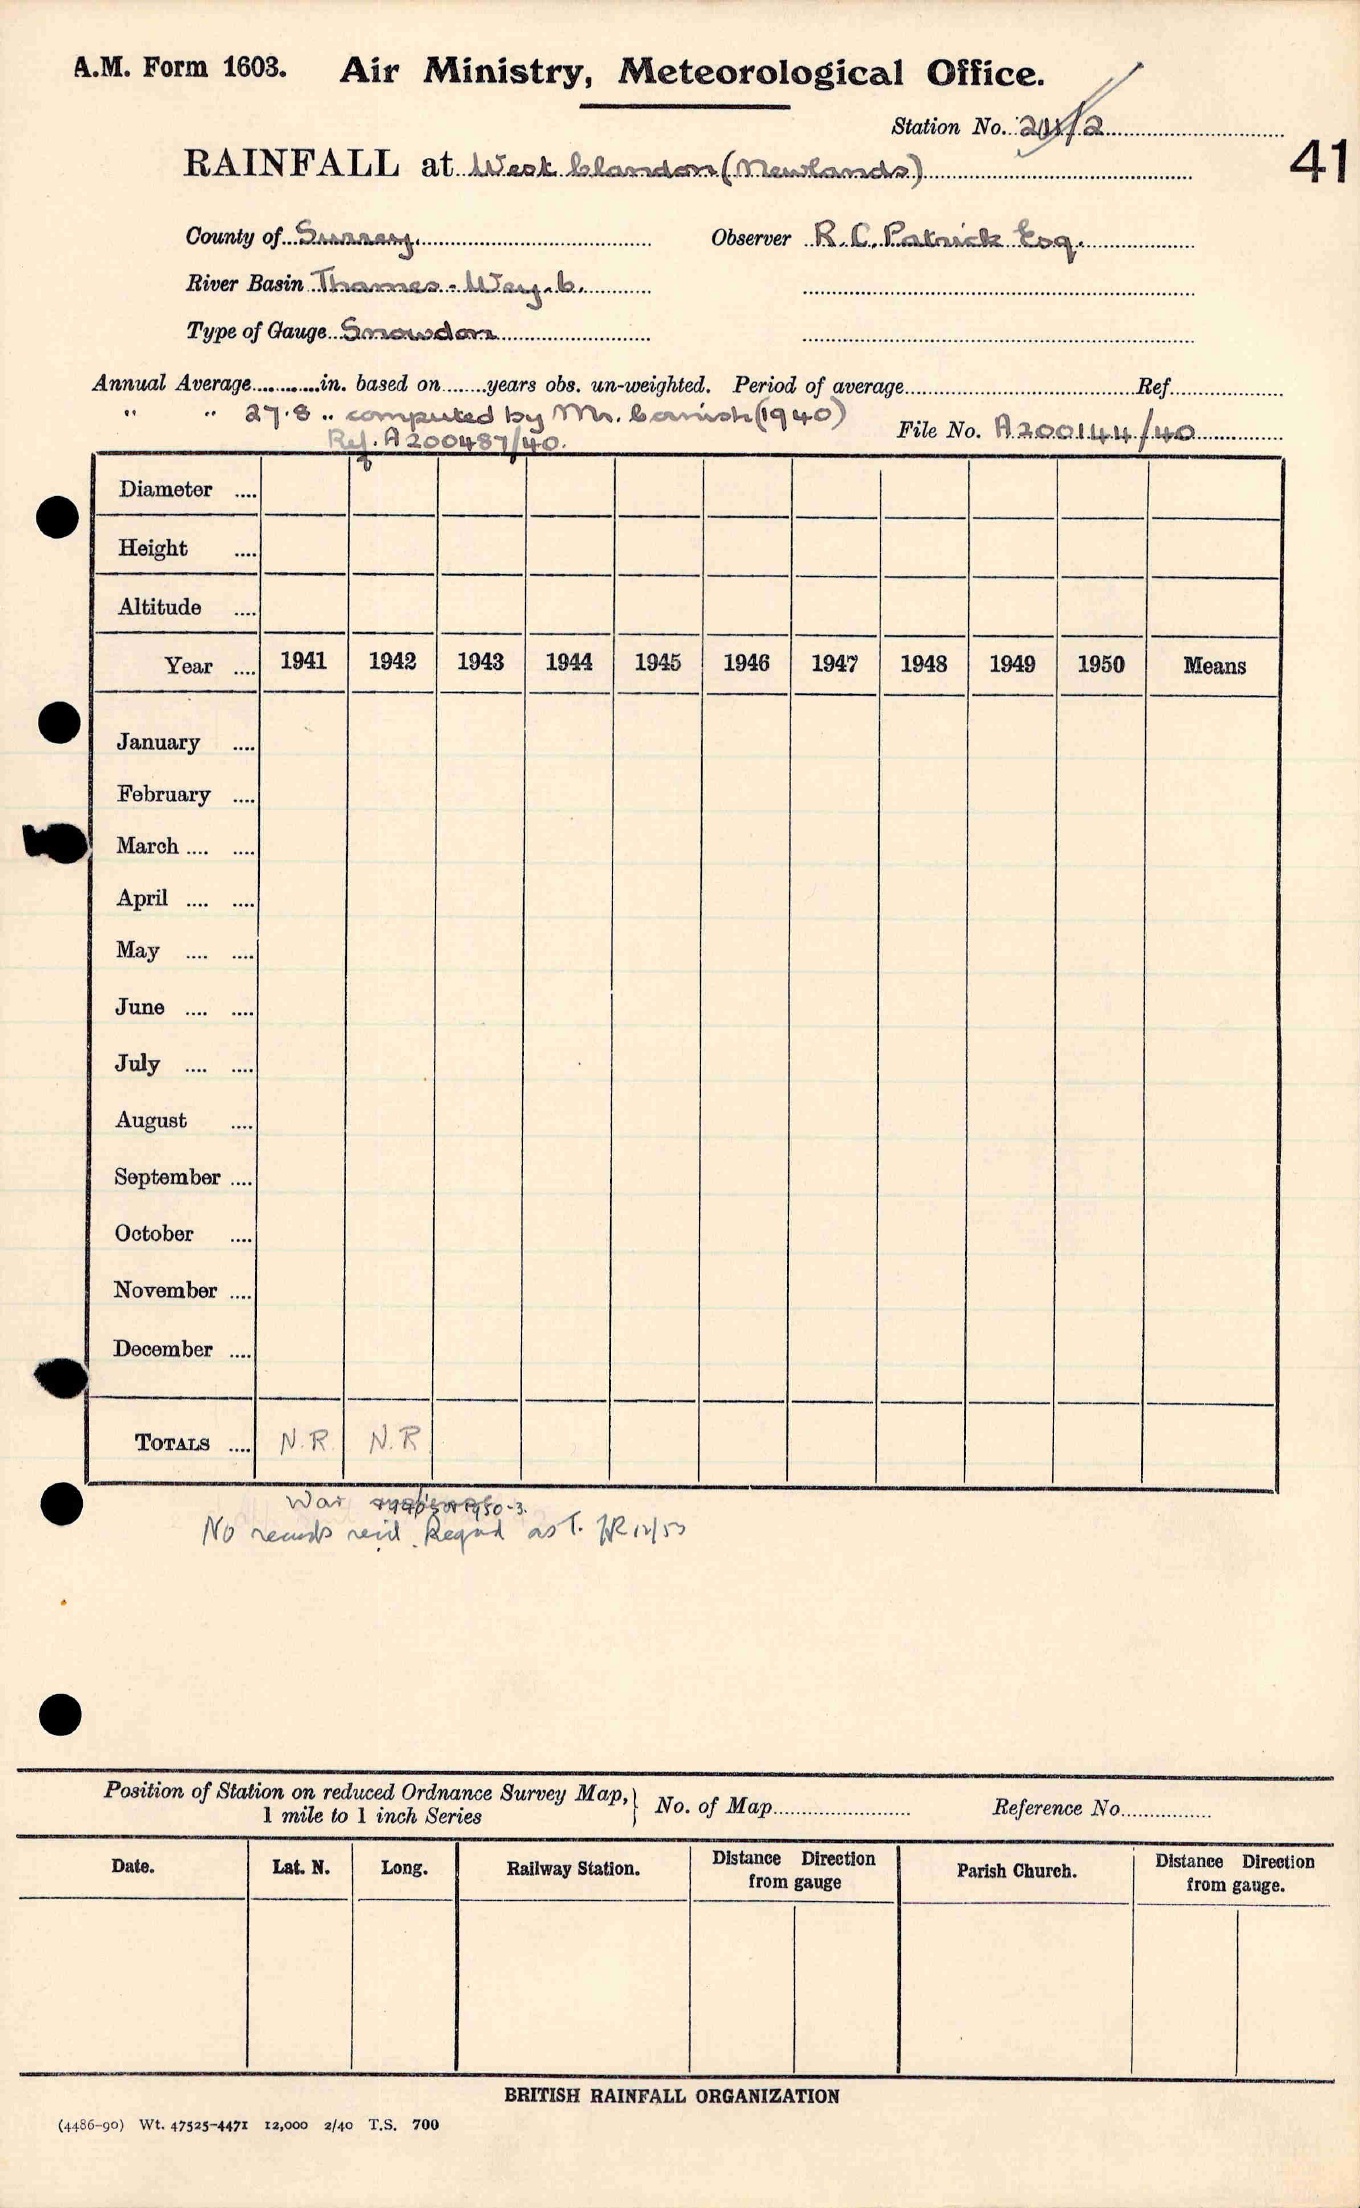 A.M. Form 1603. Air Ministry, Meteorological Office.
Station No. 211/2
41
RAINFALL at West Clandon (Newlands)
County of Surrey. Observer R. C. Patrick Esq.
River Basin Thames - Wey. b.
Type of Gauge Snowdon
Annual Average............in. based on........years obs. un-weighted. Period of average.......... Ref..........
" " 27.8 .. computed by Mr. Cornish (1940)
File No. A200144/40
Ref. A200487/40.
Diameter ....
Height ....
Altitude ....
Year .... 1941 1942 1943 1944 1945 1946 1947 1948 1949 1950 Means
January ....
February ....
March .... ....
April .... ....
May .... ....
June .... ....
July .... ....
August ....
September ....
October ....
November ....
December ....
TOTALS .... N.R. N.R
War 1950-3.
No records recd. Regard as T. 12/53
Position of Station on reduced Ordnance Survey Map,
1 mile to 1 inch Series } No. of Map.......... Reference No..........
Date. Lat. N. Long. Railway Station. Distance Direction from gauge Parish Church. Distance Direction from gauge.
BRITISH RAINFALL ORGANIZATION
(4486-90) Wt. 47525-4471 12,000 2/40 T.S. 700